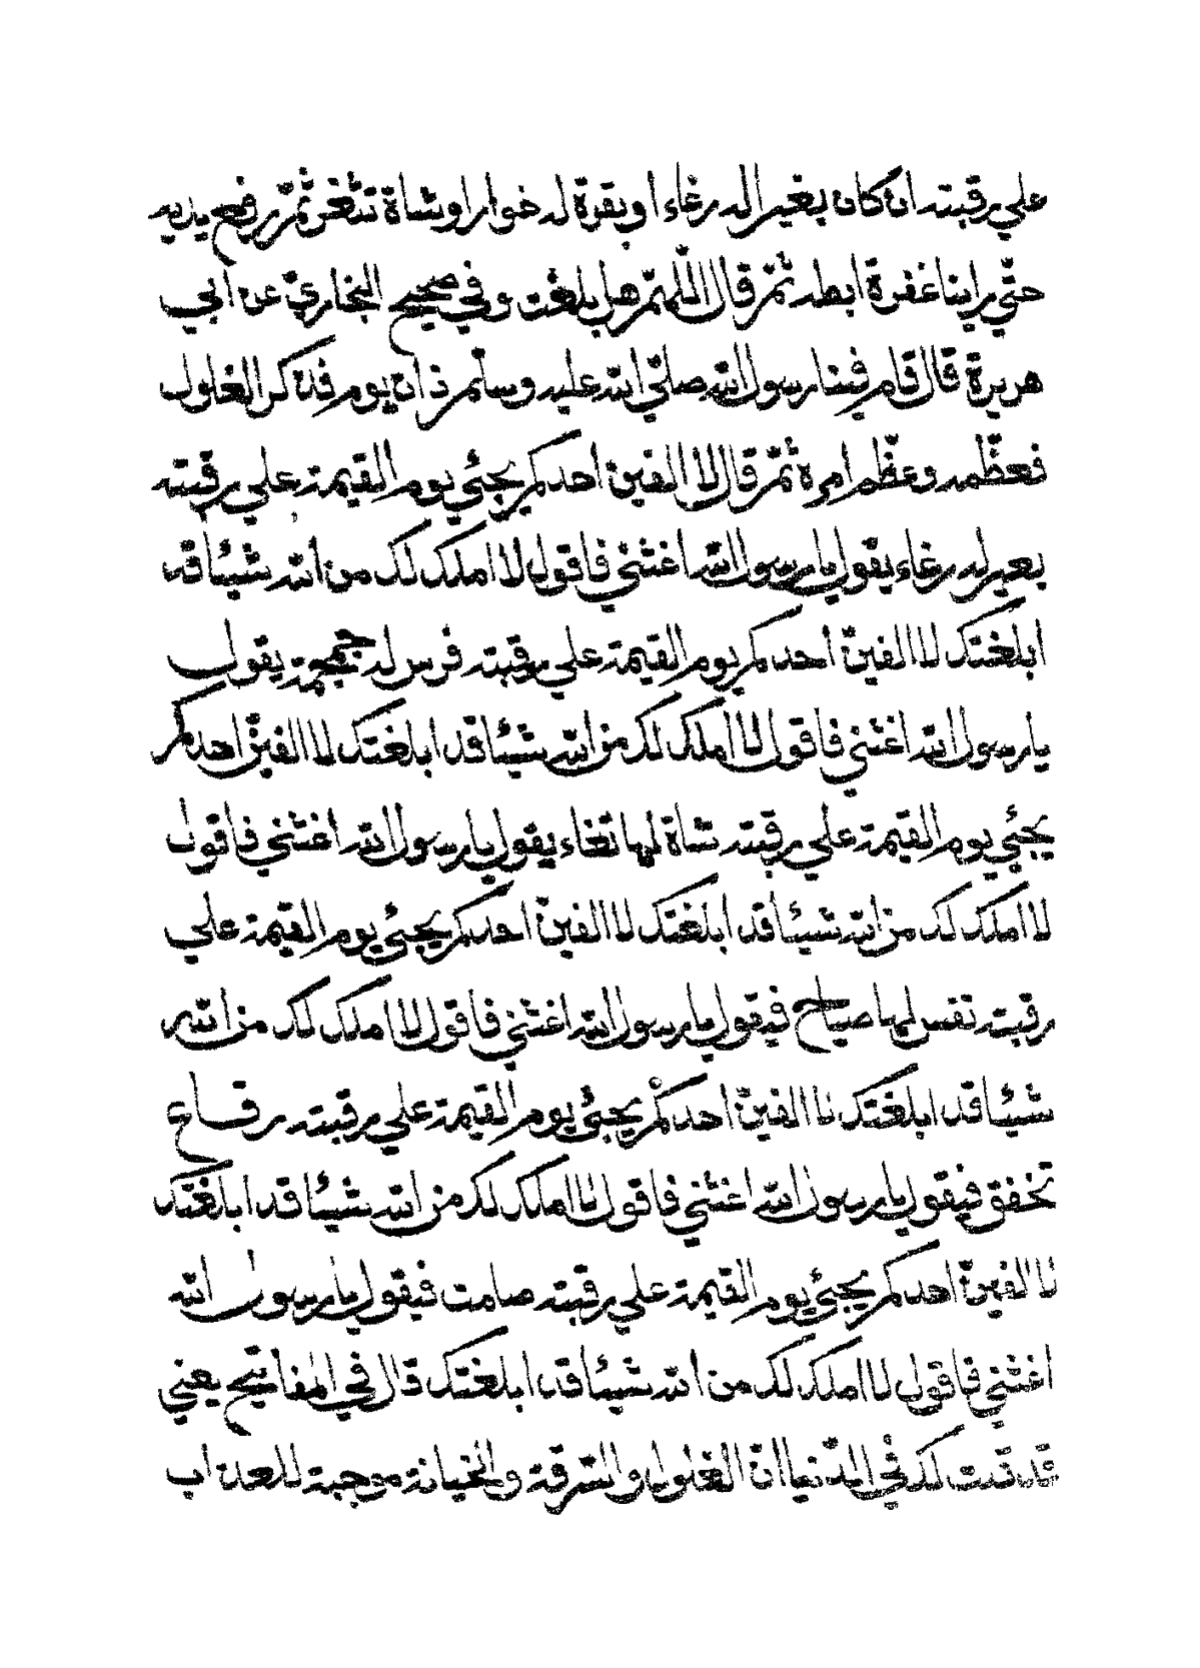 علي رقبته ان كان بغيرا له رغاء او بقرة له خوار او شاة تثغر ثمّ رفع يديه
حتّي راينا غفرة ابطه ثمّ قال اللّهمّ هل بلغت وفي صحيح البخاريّ عن ابي
هريرة قال قام فينا رسول الله صلّي الله عليه وسلّم ذات يوم فذكر الغلول
فعظّمه وعظّم امره ثمّ قال لا الفين احدكم يجئي يوم القيمة علي رقبته
بعير له رغاء يقول يا رسول الله اغثني فاقول لا املك لك من الله شيئا قد
ابلغتك لا الفينّ احدكم يوم القيمة علي رقبته فرس له حمحمة يقول
يا رسول الله اغثني فاقول لا املك لك من الله شيئا قد ابلغتك لا الفينّ احدكم
يجئي يوم القيمة علي رقبته شاة لها ثغاء يقول يا رسول الله اغثني فاقول
لا املك لك من الله شيئا قد ابلغتك لا الفينّ احدكم يجئي يوم القيمة علي
رقبته نفس لها صياح فيقول يا رسول الله اغثني فاقول لا املك لك من الله
شيئا قد ابلغتك لا الفينّ احدكم يجئي يوم القيمة علي رقبته رقاع
تخفق فيقول يا رسول الله اغثني فاقول لا املك لك من الله شيئا قد ابلغتك
لا الفينّ احدكم يجئي يوم القيمة علي رقبته صامت فيقول يا رسول الله
اغثني فاقول لا املك لك من الله شيئا قد ابلغتك قال في المفاتيح يعني
قد قلت لك في الدّنيا انّ الغلول والسّرقة والخيانة موجبة للعذاب